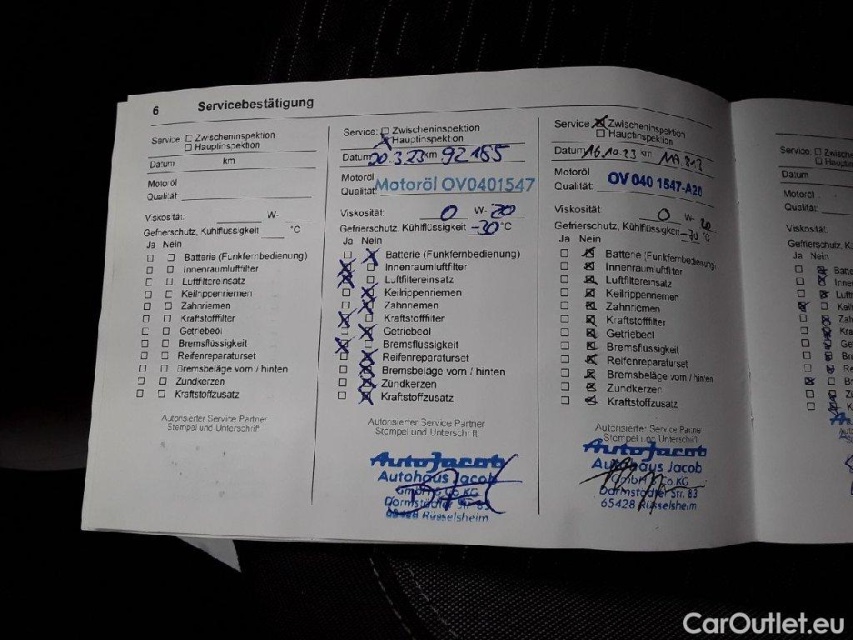 6 Servicebestätigung
Service: Zwischeninspektion
Hauptinspektion
Datum km
Motoröl
Qualität:
Viskosität: W-
Gefrierschutz, Kühlflüssigkeit °C
Ja Nein
Batterie (Funkfernbedienung)
Innenraumluftfilter
Luftfiltereinsatz
Keilrippenriemen
Zahnriemen
Kraftstofffilter
Getriebeöl
Bremsflüssigkeit
Reifenreparaturset
Bremsbeläge vorn / hinten
Zündkerzen
Kraftstoffzusatz
Autorisierter Service Partner
Stempel und Unterschrift
Service: Zwischeninspektion
Hauptinspektion
Datum 20.3.23 km 92165
Motoröl
Qualität: Motoröl OV0401547
Viskosität: 0 W- 20
Gefrierschutz, Kühlflüssigkeit -30 °C
Ja Nein
Batterie (Funkfernbedienung)
Innenraumluftfilter
Luftfiltereinsatz
Keilrippenriemen
Zahnriemen
Kraftstofffilter
Getriebeöl
Bremsflüssigkeit
Reifenreparaturset
Bremsbeläge vorn / hinten
Zündkerzen
Kraftstoffzusatz
Autorisierter Service Partner
Stempel und Unterschrift
AutoJacob
Autohaus Jacob
GmbH & Co KG
65428 Rüsselsheim
Service: Zwischeninspektion
Hauptinspektion
Datum 16.10.23 km
Motoröl
Qualität: OV 040 1547-A20
Viskosität: 0 W- 20
Gefrierschutz, Kühlflüssigkeit -30 °C
Ja Nein
Batterie (Funkfernbedienung)
Innenraumluftfilter
Luftfiltereinsatz
Keilrippenriemen
Zahnriemen
Kraftstofffilter
Getriebeöl
Bremsflüssigkeit
Reifenreparaturset
Bremsbeläge vorn / hinten
Zündkerzen
Kraftstoffzusatz
Autorisierter Service Partner
Stempel und Unterschrift
AutoJacob
Autohaus Jacob
GmbH & Co KG
Darmstädter Str. 83
65428 Rüsselsheim
Service:
Datum
Motoröl
Qualität:
Viskosität:
Gefrierschutz, K
Ja Nein
CarOutlet.eu